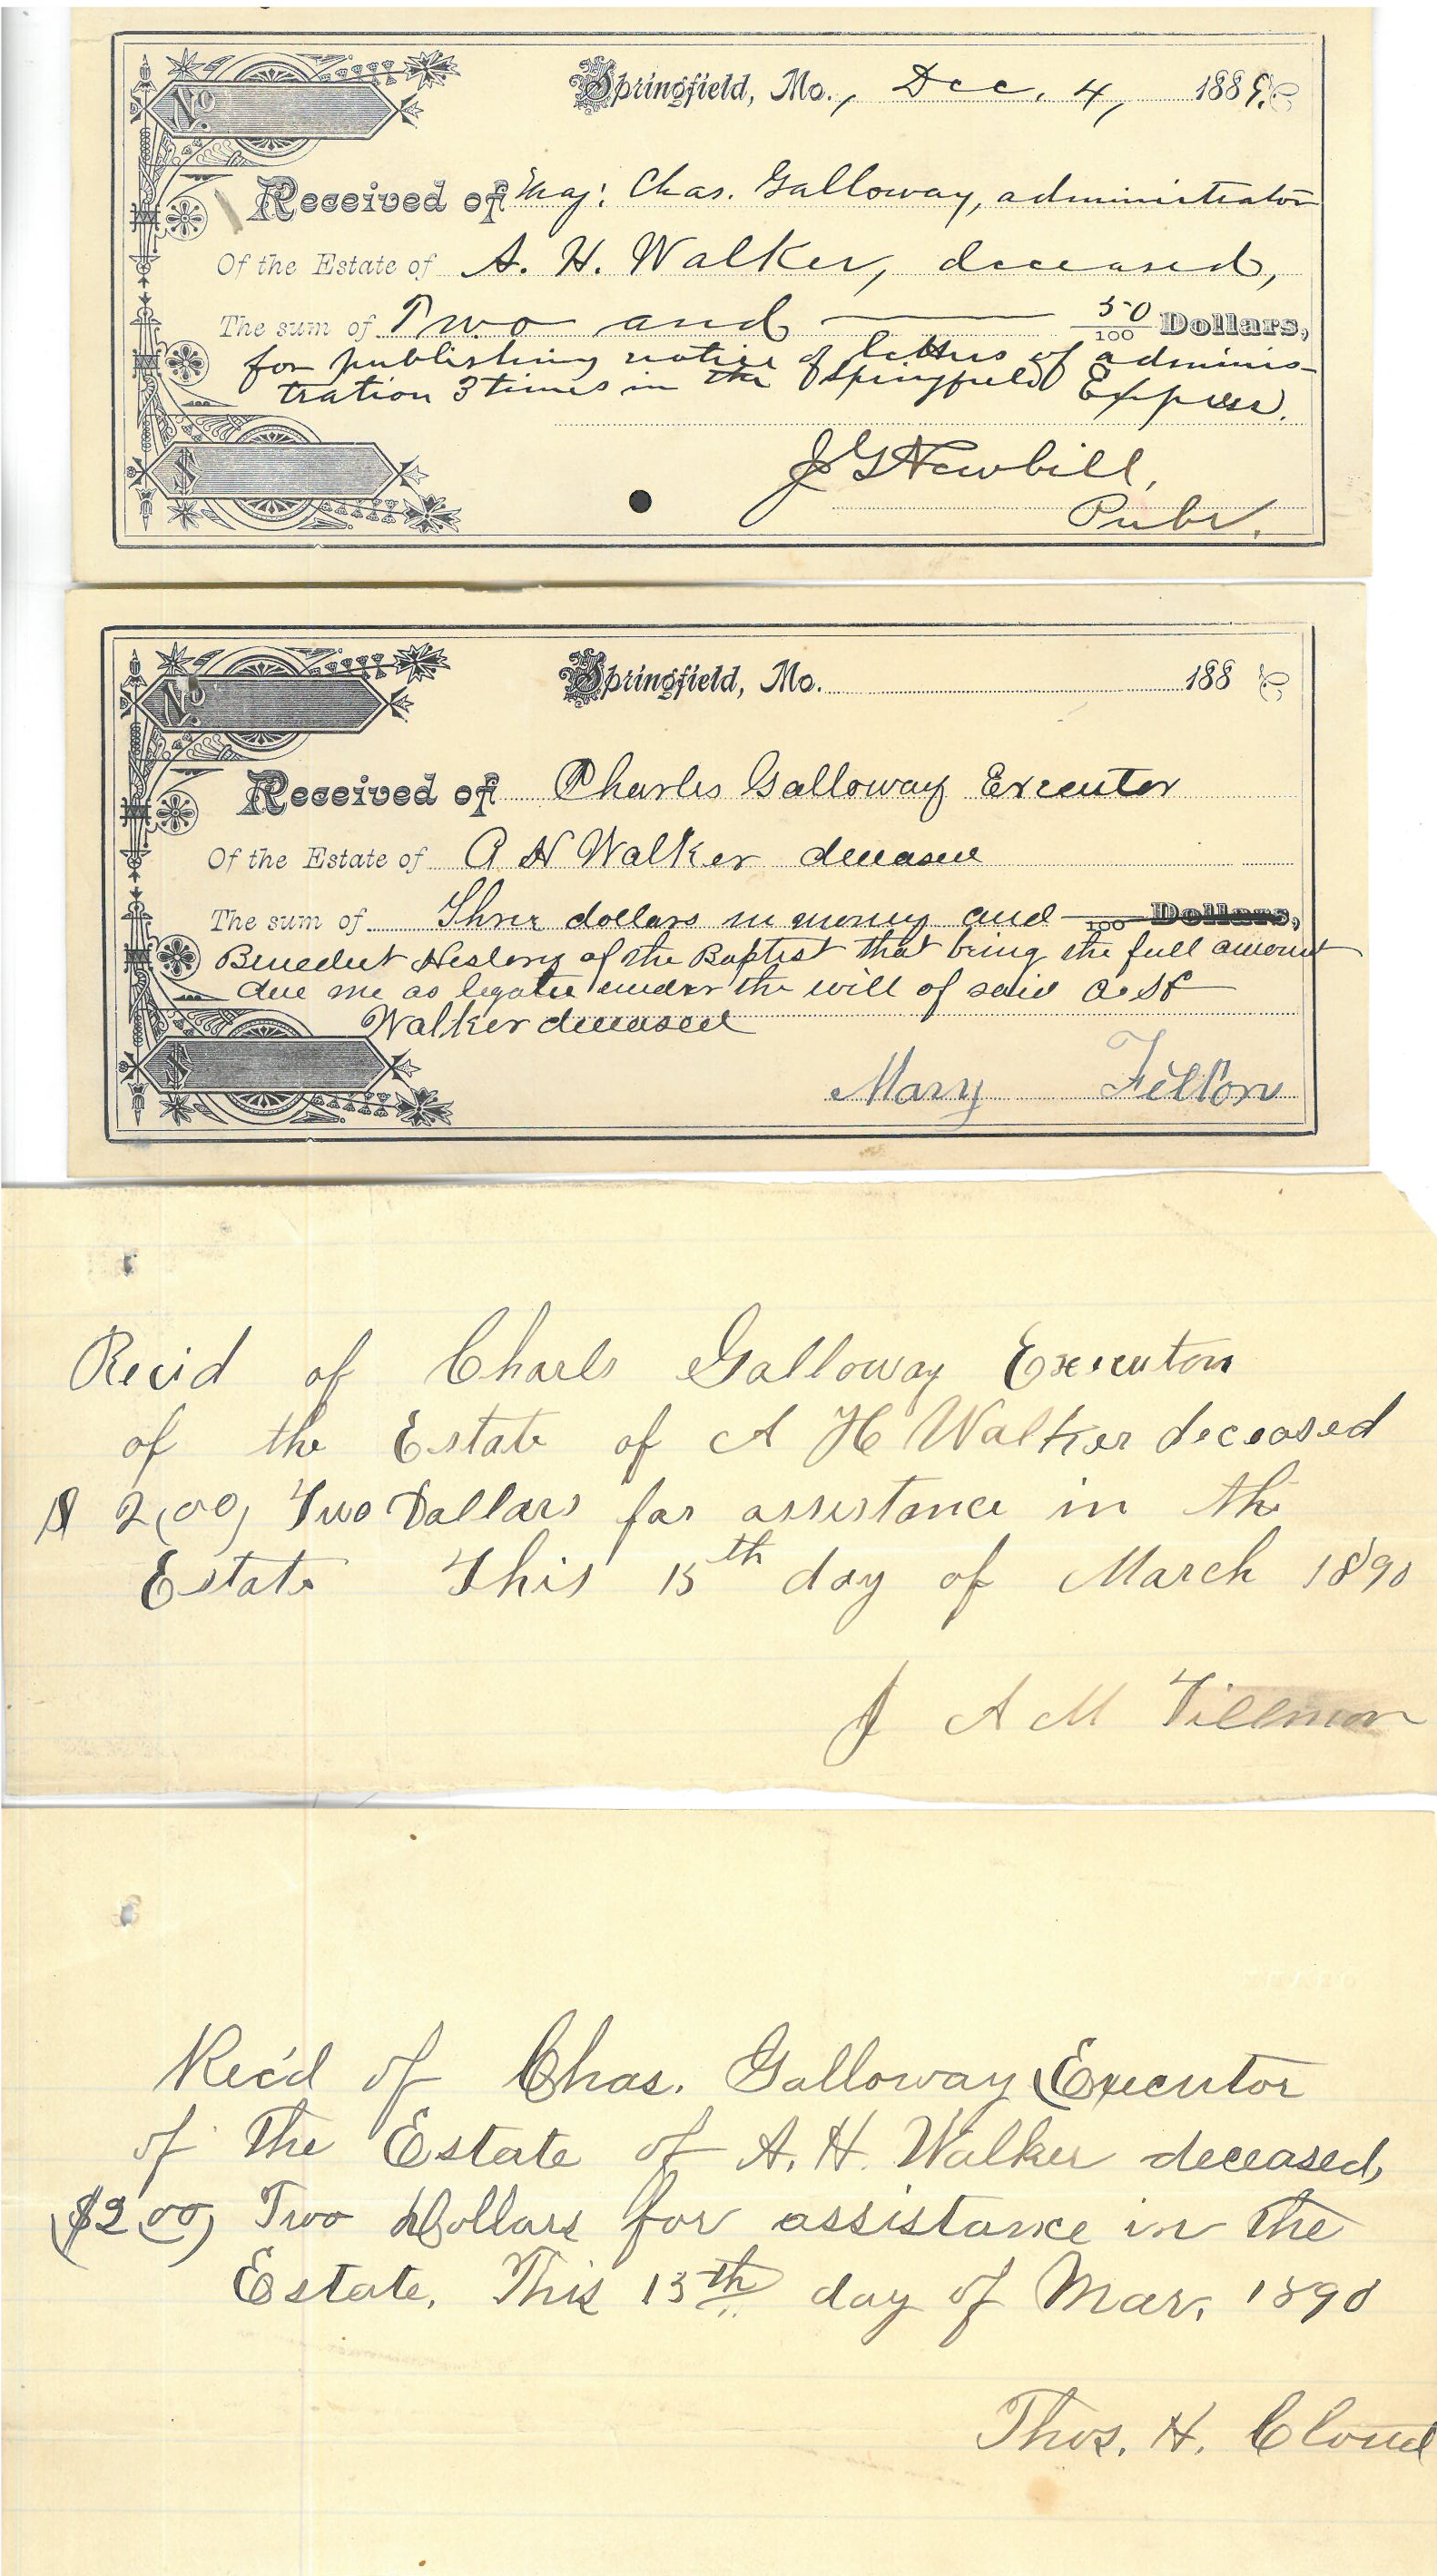 No.
Springfield, Mo., Dec. 4, 1889.
Received of Maj: Chas. Galloway, administrator
Of the Estate of A. H. Walker, deceased,
The sum of Two and 50/100 Dollars,
for publishing notice of letters of adminis-
tration 3 times in the Springfield Express.
$
J G Newbill,
Pubr.
No.
Springfield, Mo. 188
Received of Charles Galloway Executor
Of the Estate of A H Walker deceased
The sum of Three dollars in money and /100 Dollars,
Benedict History of the Baptist that being the full amount
due me as legatee under the will of said A. H
Walker deceased
$
Mary Felton
Recid of Charls Galloway Executon
of the Estate of A H Walker deceased
$ 2,00, Two Dollars for assistance in the
Estate This 15th day of March 1890
J A M Tillmon
Rec'd of Chas. Galloway Executor
of the Estate of A. H. Walker deceased,
($2.00) Two Dollars for assistance in the
Estate. This 15th day of Mar. 1890
Thos. H. Cloud